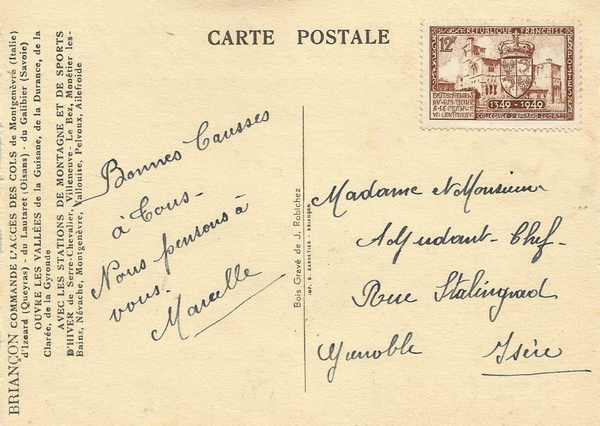 CARTE POSTALE
BRIANÇON COMMANDE L'ACCÈS DES COLS de Montgenèvre (Italie)
d'Izoard (Queyras) - du Lautaret (Oisans) - du Galibier (Savoie)
OUVRE LES VALLÉES de la Guisane, de la Durance, de la
Clarée, de la Gyronde
AVEC LES STATIONS DE MONTAGNE ET DE SPORTS
D'HIVER de Serre-Chevalier, Villeneuve - Le Bez, Monêtier les-
Bains, Névache, Montgenèvre, Vallouise, Pelvoux, Ailefroide
Bonnes Causses
à Tous -
Nous pensons à
vous.
Marcelle
Bois Gravé de J. Robichez
IMP. D. BRIANÇON
12F REPUBLIQUE FRANÇAISE
POSTES
RATTACHEMENT
DU DAUPHINÉ
A LA FRANCE
VIe CENTENAIRE
1349-1949
Madame et Monsieur
Adjudant-Chef-
Rue Stalingrad
Grenoble Isère